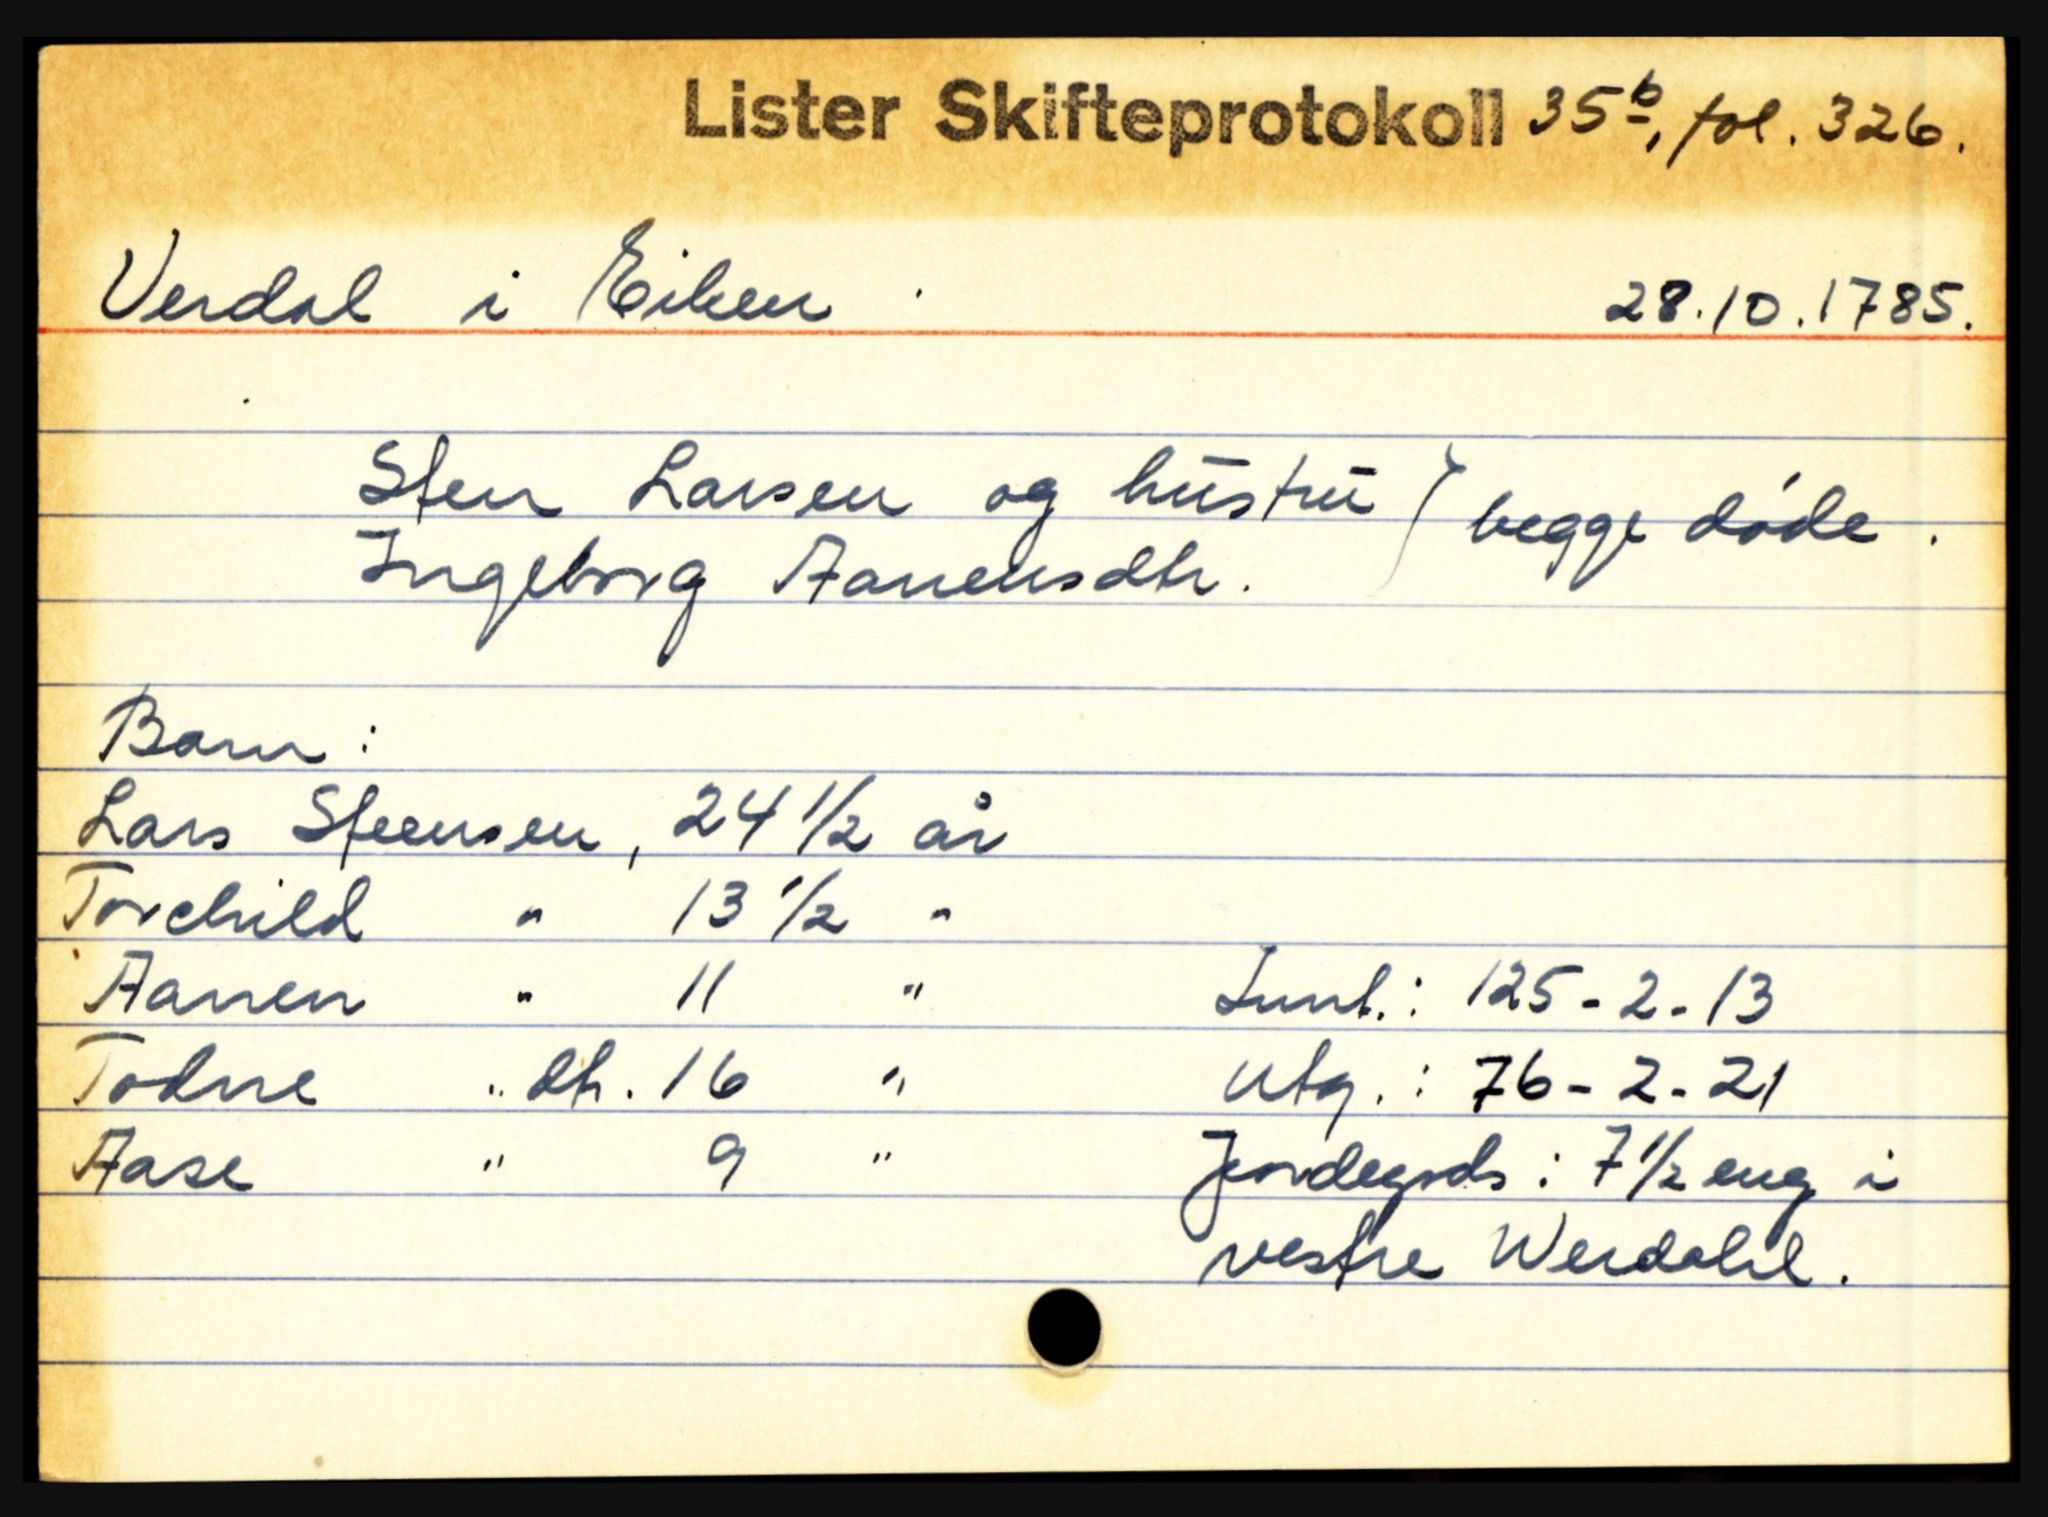 Lister Skifteprotokoll 35b, fol. 326.
Verdal i Eiken. 28.10.1785.
Sten Larsen og hustru } begge døde.
Ingeborg Aanensdtr.
Barn:
Lars Steensen, 24 1/2 år
Torchild " 13 1/2 "
Aanen " 11 " Innt.: 125-2-13
Todne " dtr. 16 " Utg.: 76-2-21
Aase " 9 " Jordegods: 7 1/2 eng i
vestre Werdahl.